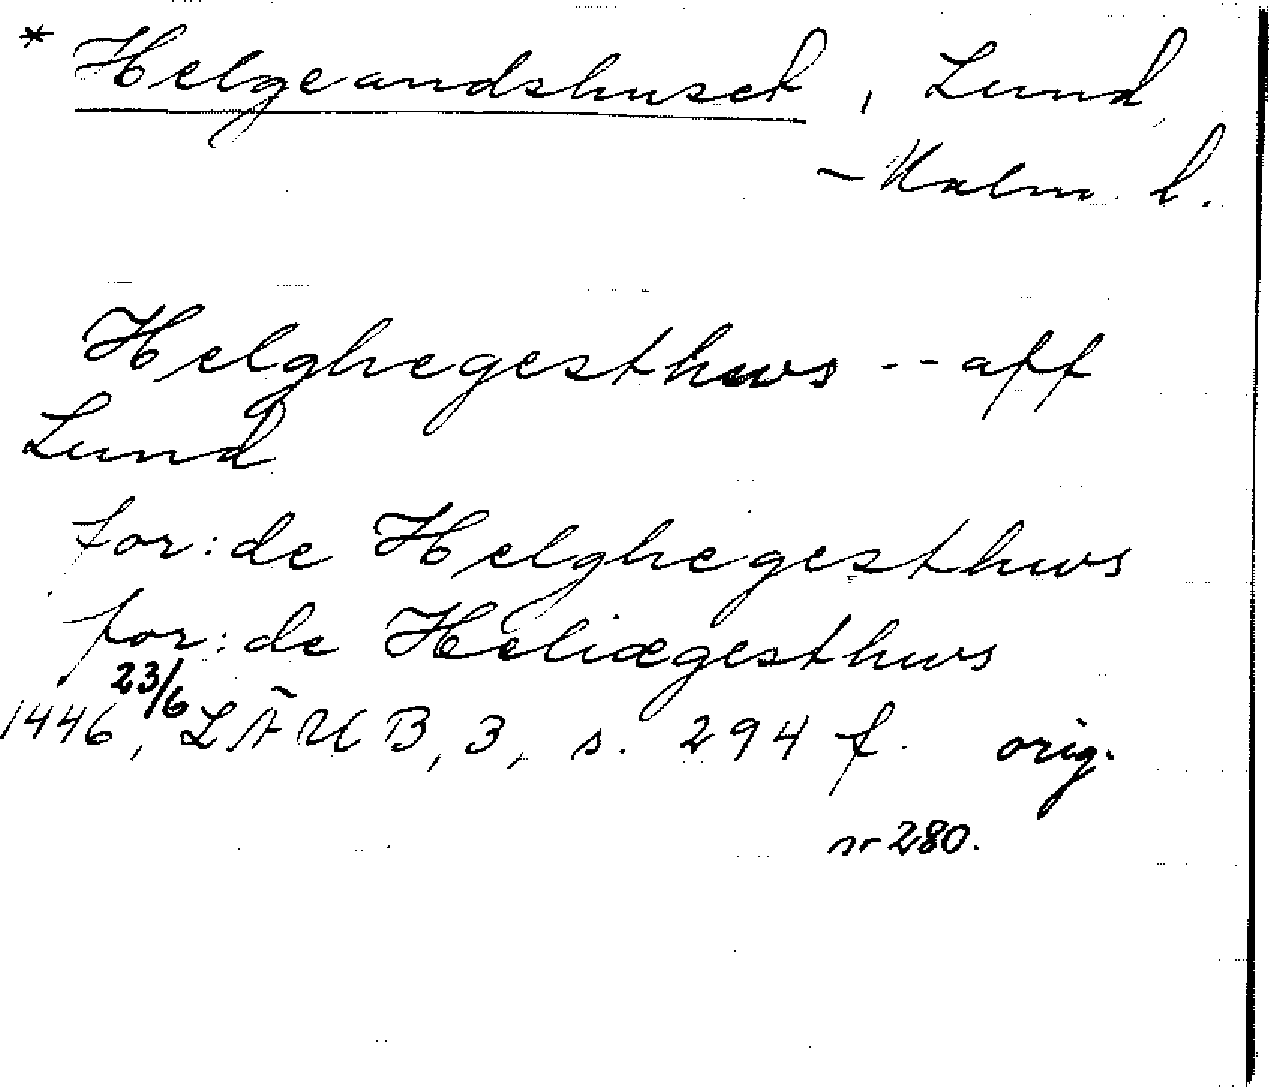 * Helgeandshuset, Lund,
Malm. l.
Helghegesthws -- aff
Lund
for: de Helghegesthws
for: de Heliægesthws
1446 23/6, LÄUB, 3, s. 294 f. orig.
nr 280.